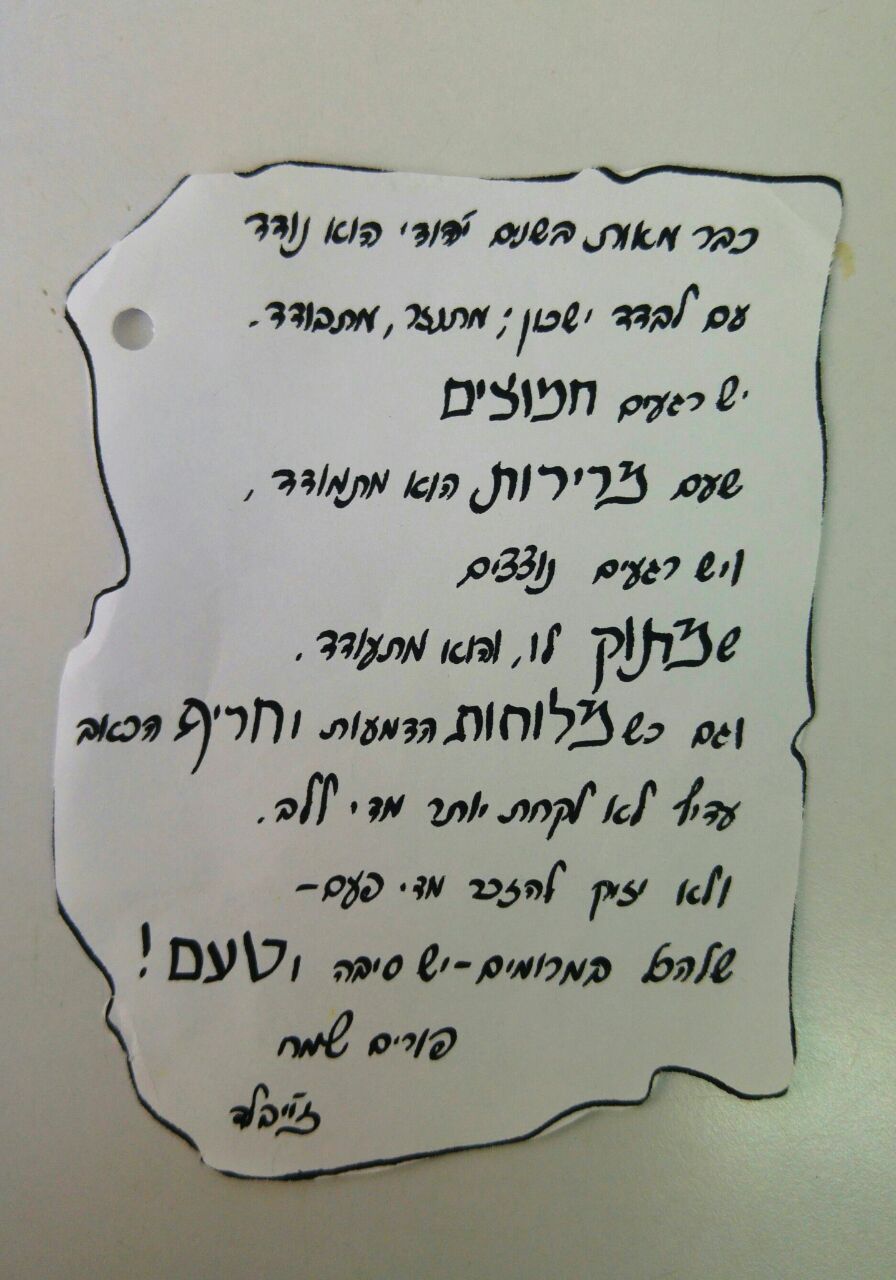 כבר מאות בשנים יהודי הוא נודד
עם לבדד ישכון; מתנזר, מתבודד.
יש רגעים חמוצים
שעם מרירות הוא מתמודד,
ויש רגעים נוצצים
שמתוק לו, והוא מתעודד.
וגם כשמלוחות הדמעות וחריף הכאב
עדיף לא לקחת יותר מדי ללב.
ולא יזיק להזכר מדי פעם-
שלהכל במרומים-יש סיבה וטעם!
פורים שמח